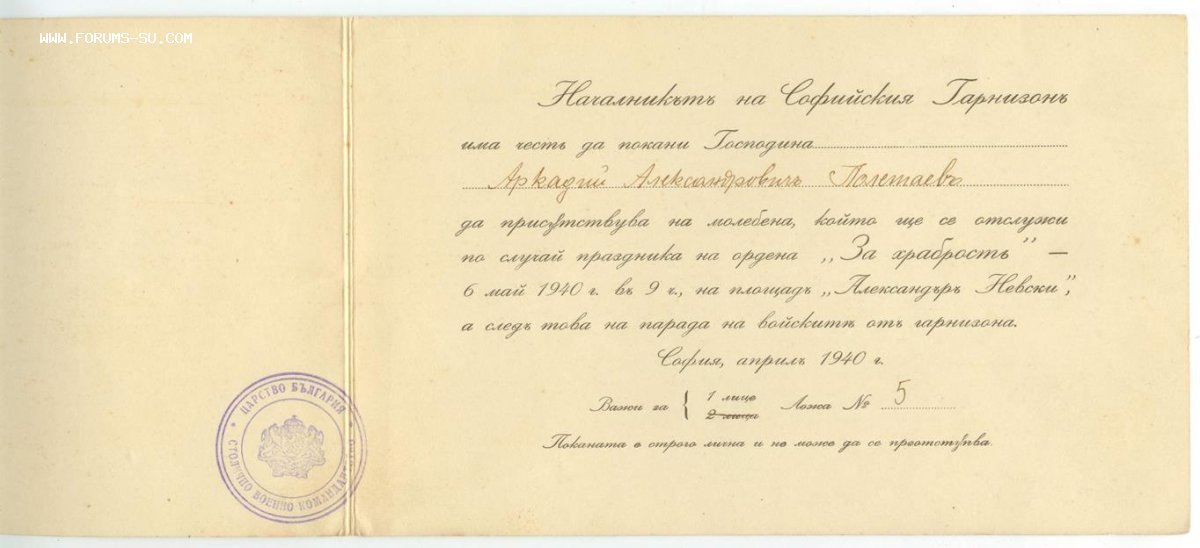 WWW.FORUMS-SU.COM
Началникътъ на Софийския Гарнизонъ
има честь да покани Господина
Аркадий Александровичъ Полетаевъ
да присѫтствува на молебена, който ще се отслужи
по случай праздника на ордена „За храбрость” —
6 май 1940 г. въ 9 ч., на площадъ „Александъръ Невски”,
а следъ това на парада на войскитѣ отъ гарнизона.
София, априлъ 1940 г.
Важи за { 1 лице
2 лица
Ложа № 5
Поканата е строго лична и не може да се преотстѫпва.
ЦАРСТВО БЪЛГАРИЯ
ВОЕННО